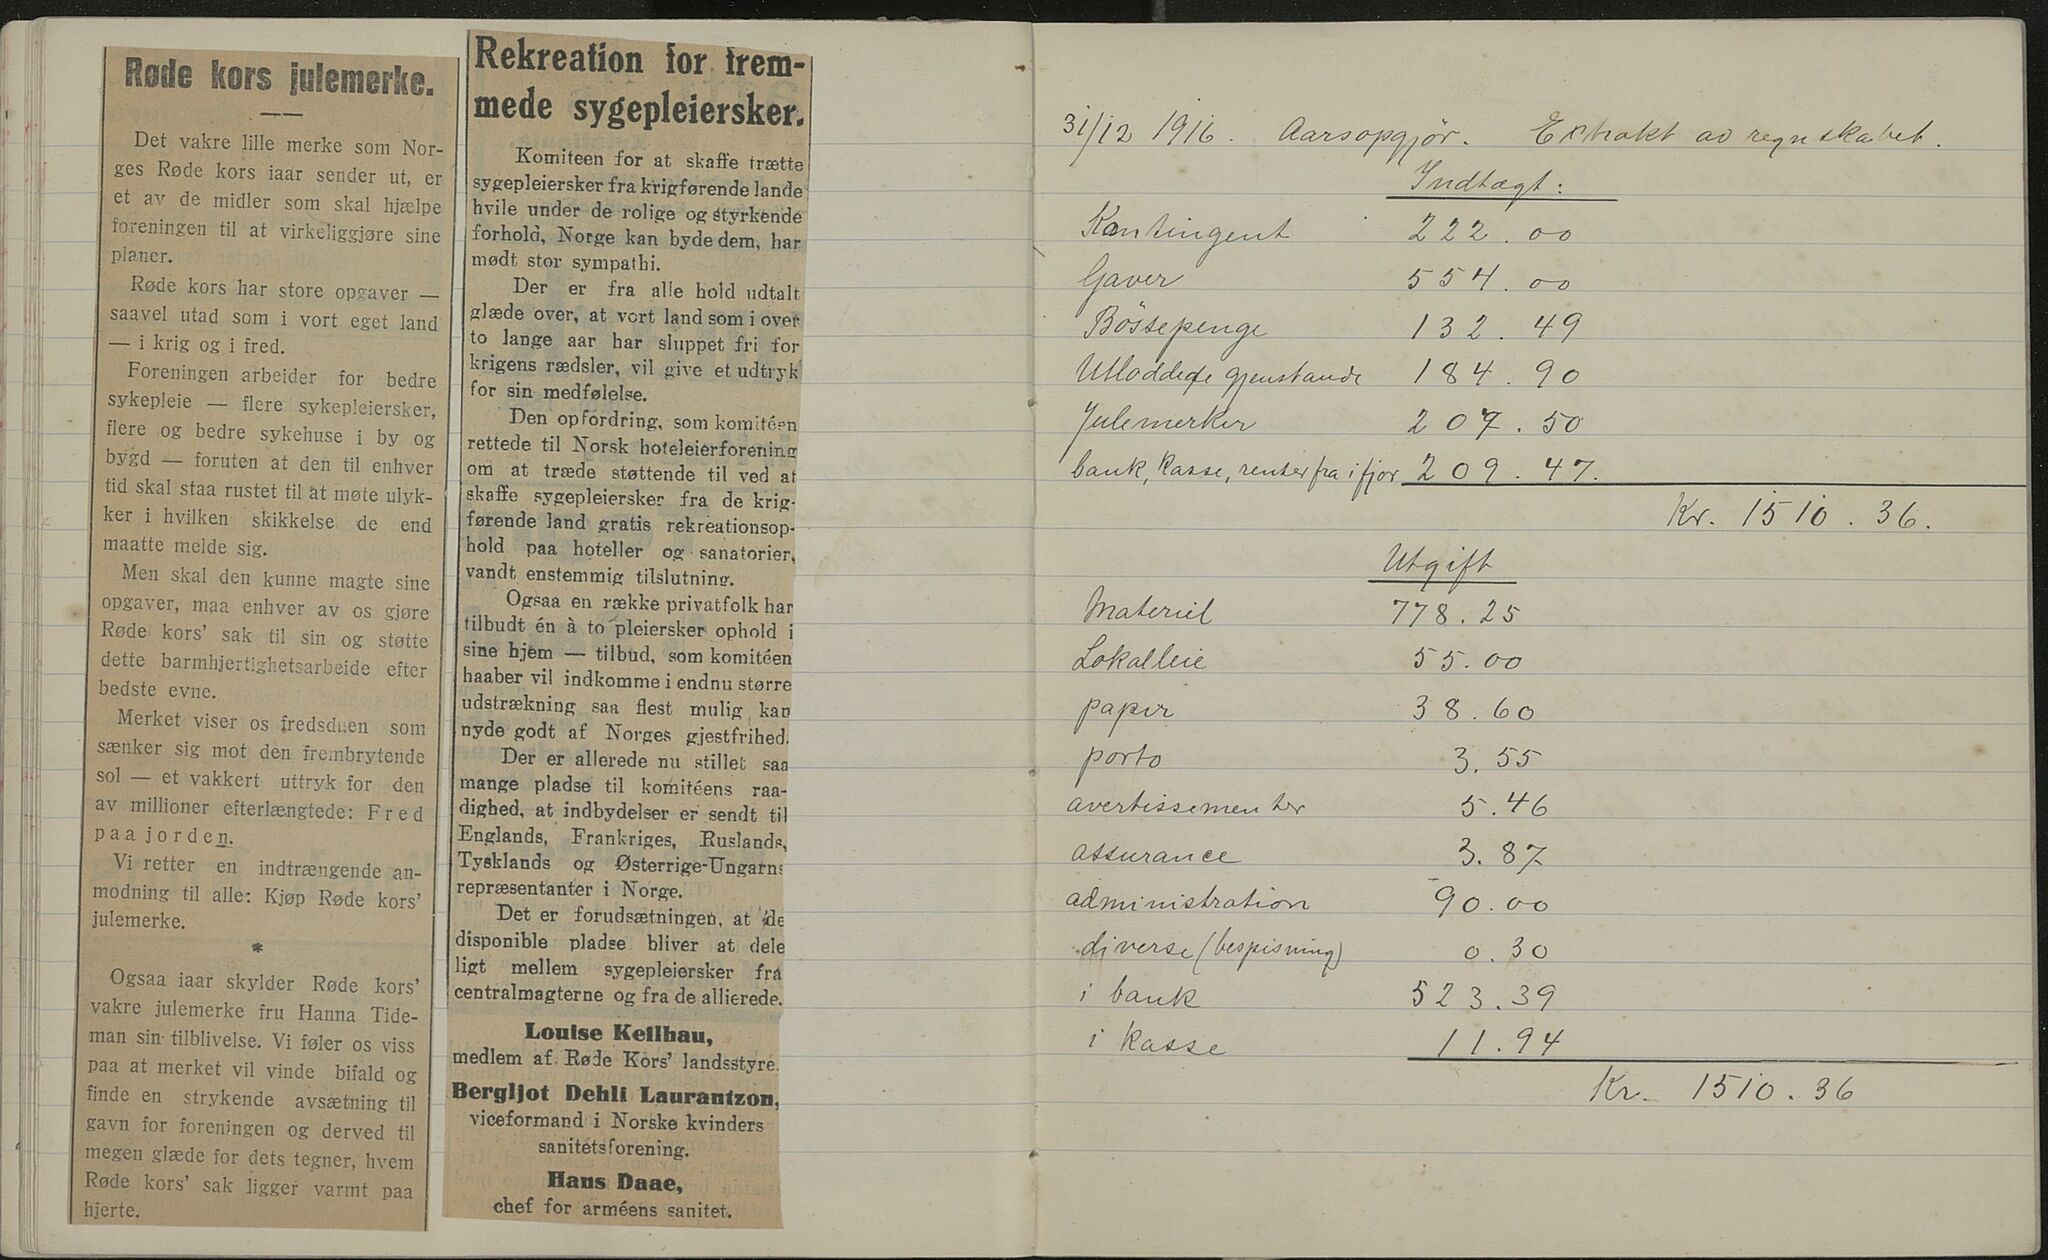 Røde kors julemerke.
Det vakre lille merke som Nor-
ges Røde kors iaar sender ut, er
et av de midler som skal hjælpe
foreningen til at virkeliggjøre sine
planer.
Røde kors har store opgaver —
saavel utad som i vort eget land
— i krig og i fred.
Foreningen arbeider for bedre
sykepleie — flere sykepleiersker,
flere og bedre sykehuse i by og
bygd — foruten at den til enhver
tid skal staa rustet til at møte ulyk-
ker i hvilken skikkelse de end
maatte melde sig.
Men skal den kunne magte sine
opgaver, maa enhver av os gjøre
Røde kors' sak til sin og støtte
dette barmhjertighetsarbeide efter
bedste evne.
Merket viser os fredsduen som
sænker sig mot den frembrytende
sol — et vakkert uttryk for den
av millioner efterlængtede: Fred
paa jorden.
Vi retter en indtrængende an-
modning til alle: Kjøp Røde kors'
julemerke.
*
Ogsaa iaar skylder Røde kors'
vakre julemerke fru Hanna Tide-
man sin tilblivelse. Vi føler os viss
paa at merket vil vinde bifald og
finde en strykende avsætning til
gavn for foreningen og derved til
megen glæde for dets tegner, hvem
Røde kors' sak ligger varmt paa
hjerte.
Rekreation for frem-
mede sygepleiersker.
Komiteen for at skaffe trætte
sygepleiersker fra krigførende lande
hvile under de rolige og styrkende
forhold, Norge kan byde dem, har
mødt stor sympathi.
Der er fra alle hold udtalt
glæde over, at vort land som i over
to lange aar har sluppet fri for
krigens rædsler, vil give et udtryk
for sin medfølelse.
Den opfordring, som komitéen
rettede til Norsk hoteleierforening
om at træde støttende til ved at
skaffe sygepleiersker fra de krig-
førende land gratis rekreationsop-
hold paa hoteller og sanatorier,
vandt enstemmig tilslutning.
Ogsaa en række privatfolk har
tilbudt én à to pleiersker ophold i
sine hjem — tilbud, som komitéen
haaber vil indkomme i endnu større
udstrækning saa flest mulig kan
nyde godt af Norges gjestfrihed.
Der er allerede nu stillet saa
mange pladse til komitéens raa-
dighed, at indbydelser er sendt til
Englands, Frankriges, Ruslands,
Tysklands og Østerrige-Ungarns
repræsentanter i Norge.
Det er forudsætningen, at de
disponible pladse bliver at dele
ligt mellem sygepleiersker fra
centralmagterne og fra de allierede.
Louise Keilhau,
medlem af Røde Kors' landsstyre.
Bergljot Dehli Laurantzon,
viceformand i Norske kvinders
sanitetsforening.
Hans Daae,
chef for arméens sanitet.
31/12 1916. Aarsopgjör. Extrakt av regnskabet.
Indtægt:
Kontingent 222.00
Gaver 554.00
Bössepenge 132.49
Utloddede gjenstande 184.90
Julemerker 207.50
bank, kasse, renter fra ifjor 209.47.
Kr. 1510.36.
Utgift
Materiel 778.25
Lokalleie 55.00
papir 38.60
porto 3.55
avertissementer 5.46
assurance 3.87
administration 90.00
diverse (bespisning) 0.30
i bank 523.39
i kasse 11.94
Kr. 1510.36